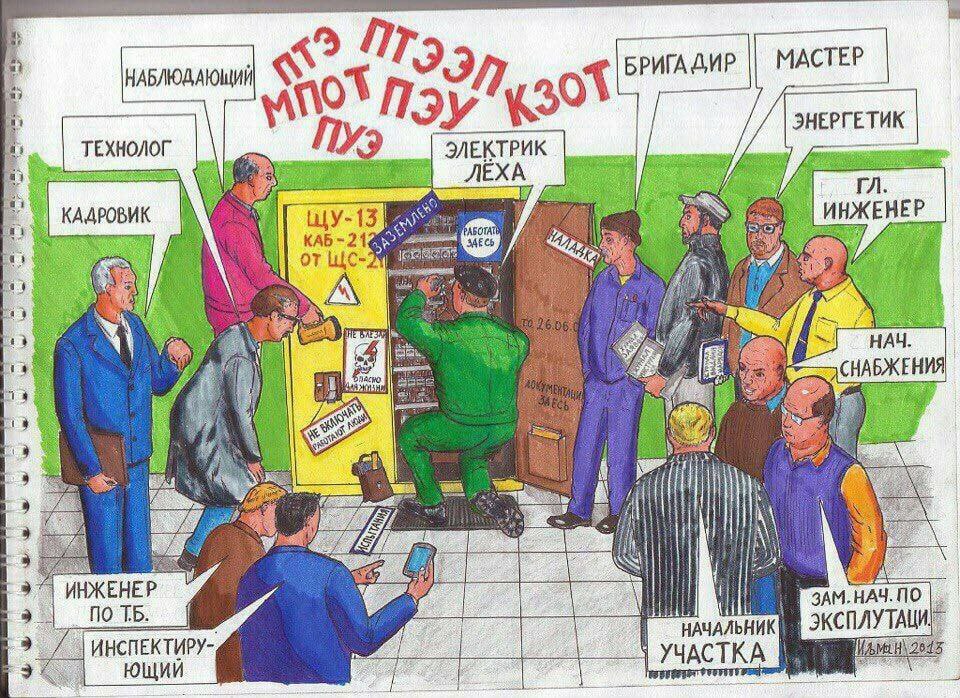 ПТЭ
ПТЭЭП
МПОТ
ПЭУ
КЗОТ
ПУЭ
НАБЛЮДАЮЩИЙ
ТЕХНОЛОГ
КАДРОВИК
ЭЛЕКТРИК
ЛЁХА
БРИГАДИР
МАСТЕР
ЭНЕРГЕТИК
ГЛ.
ИНЖЕНЕР
НАЧ.
СНАБЖЕНИЯ
ЩУ-13
КАБ-212
ОТ ЩС-2
ЗАЗЕМЛЕНО
РАБОТАТЬ
ЗДЕСЬ
НАЛАДКА
ТО, 26.06.0
НЕ ВЛЕЗАЙ
ОПАСНО
ДЛЯ ЖИЗНИ
НЕ ВКЛЮЧАТЬ
РАБОТАЮТ ЛЮДИ
ДОКУМЕНТАЦИЯ
ЗДЕСЬ
ИСПЫТАНИЯ
ИНЖЕНЕР
ПО Т.Б.
ИНСПЕКТИРУ-
ЮЩИЙ
НАЧАЛЬНИК
УЧАСТКА
ЗАМ. НАЧ. ПО
ЭКСПЛУТАЦИ.
Ильман 2013